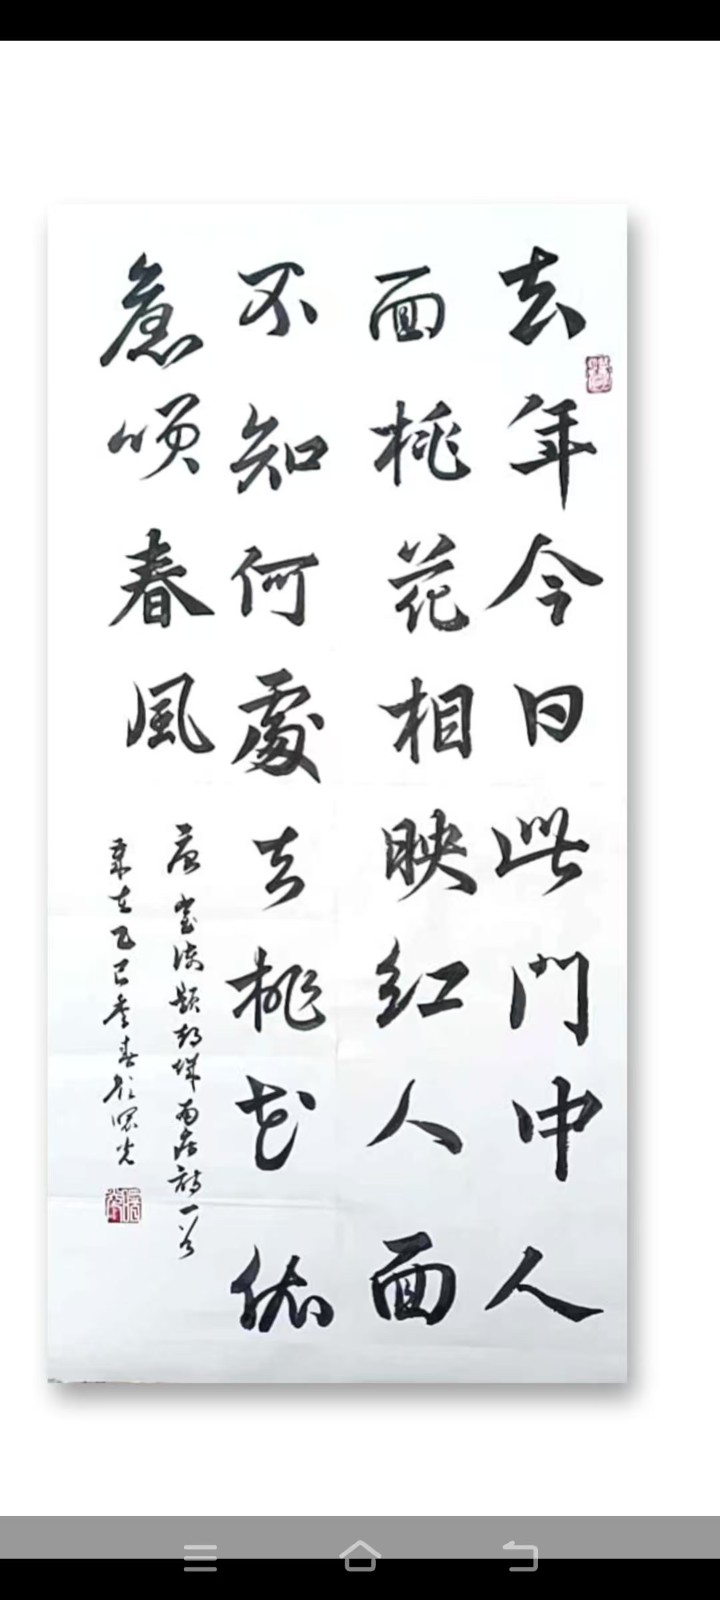 去年今日此門中人
面桃花相映紅人面
不知何處去桃花依
舊咲春風
唐崔護題都城南莊詩一首
歲在乙巳季春